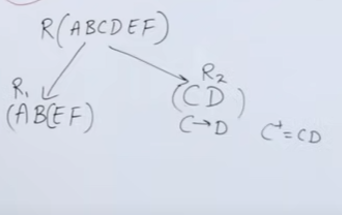 R(ABCDEF)
R₁
(ABCEF)
R₂
(CD)
C→D
C⁺=CD